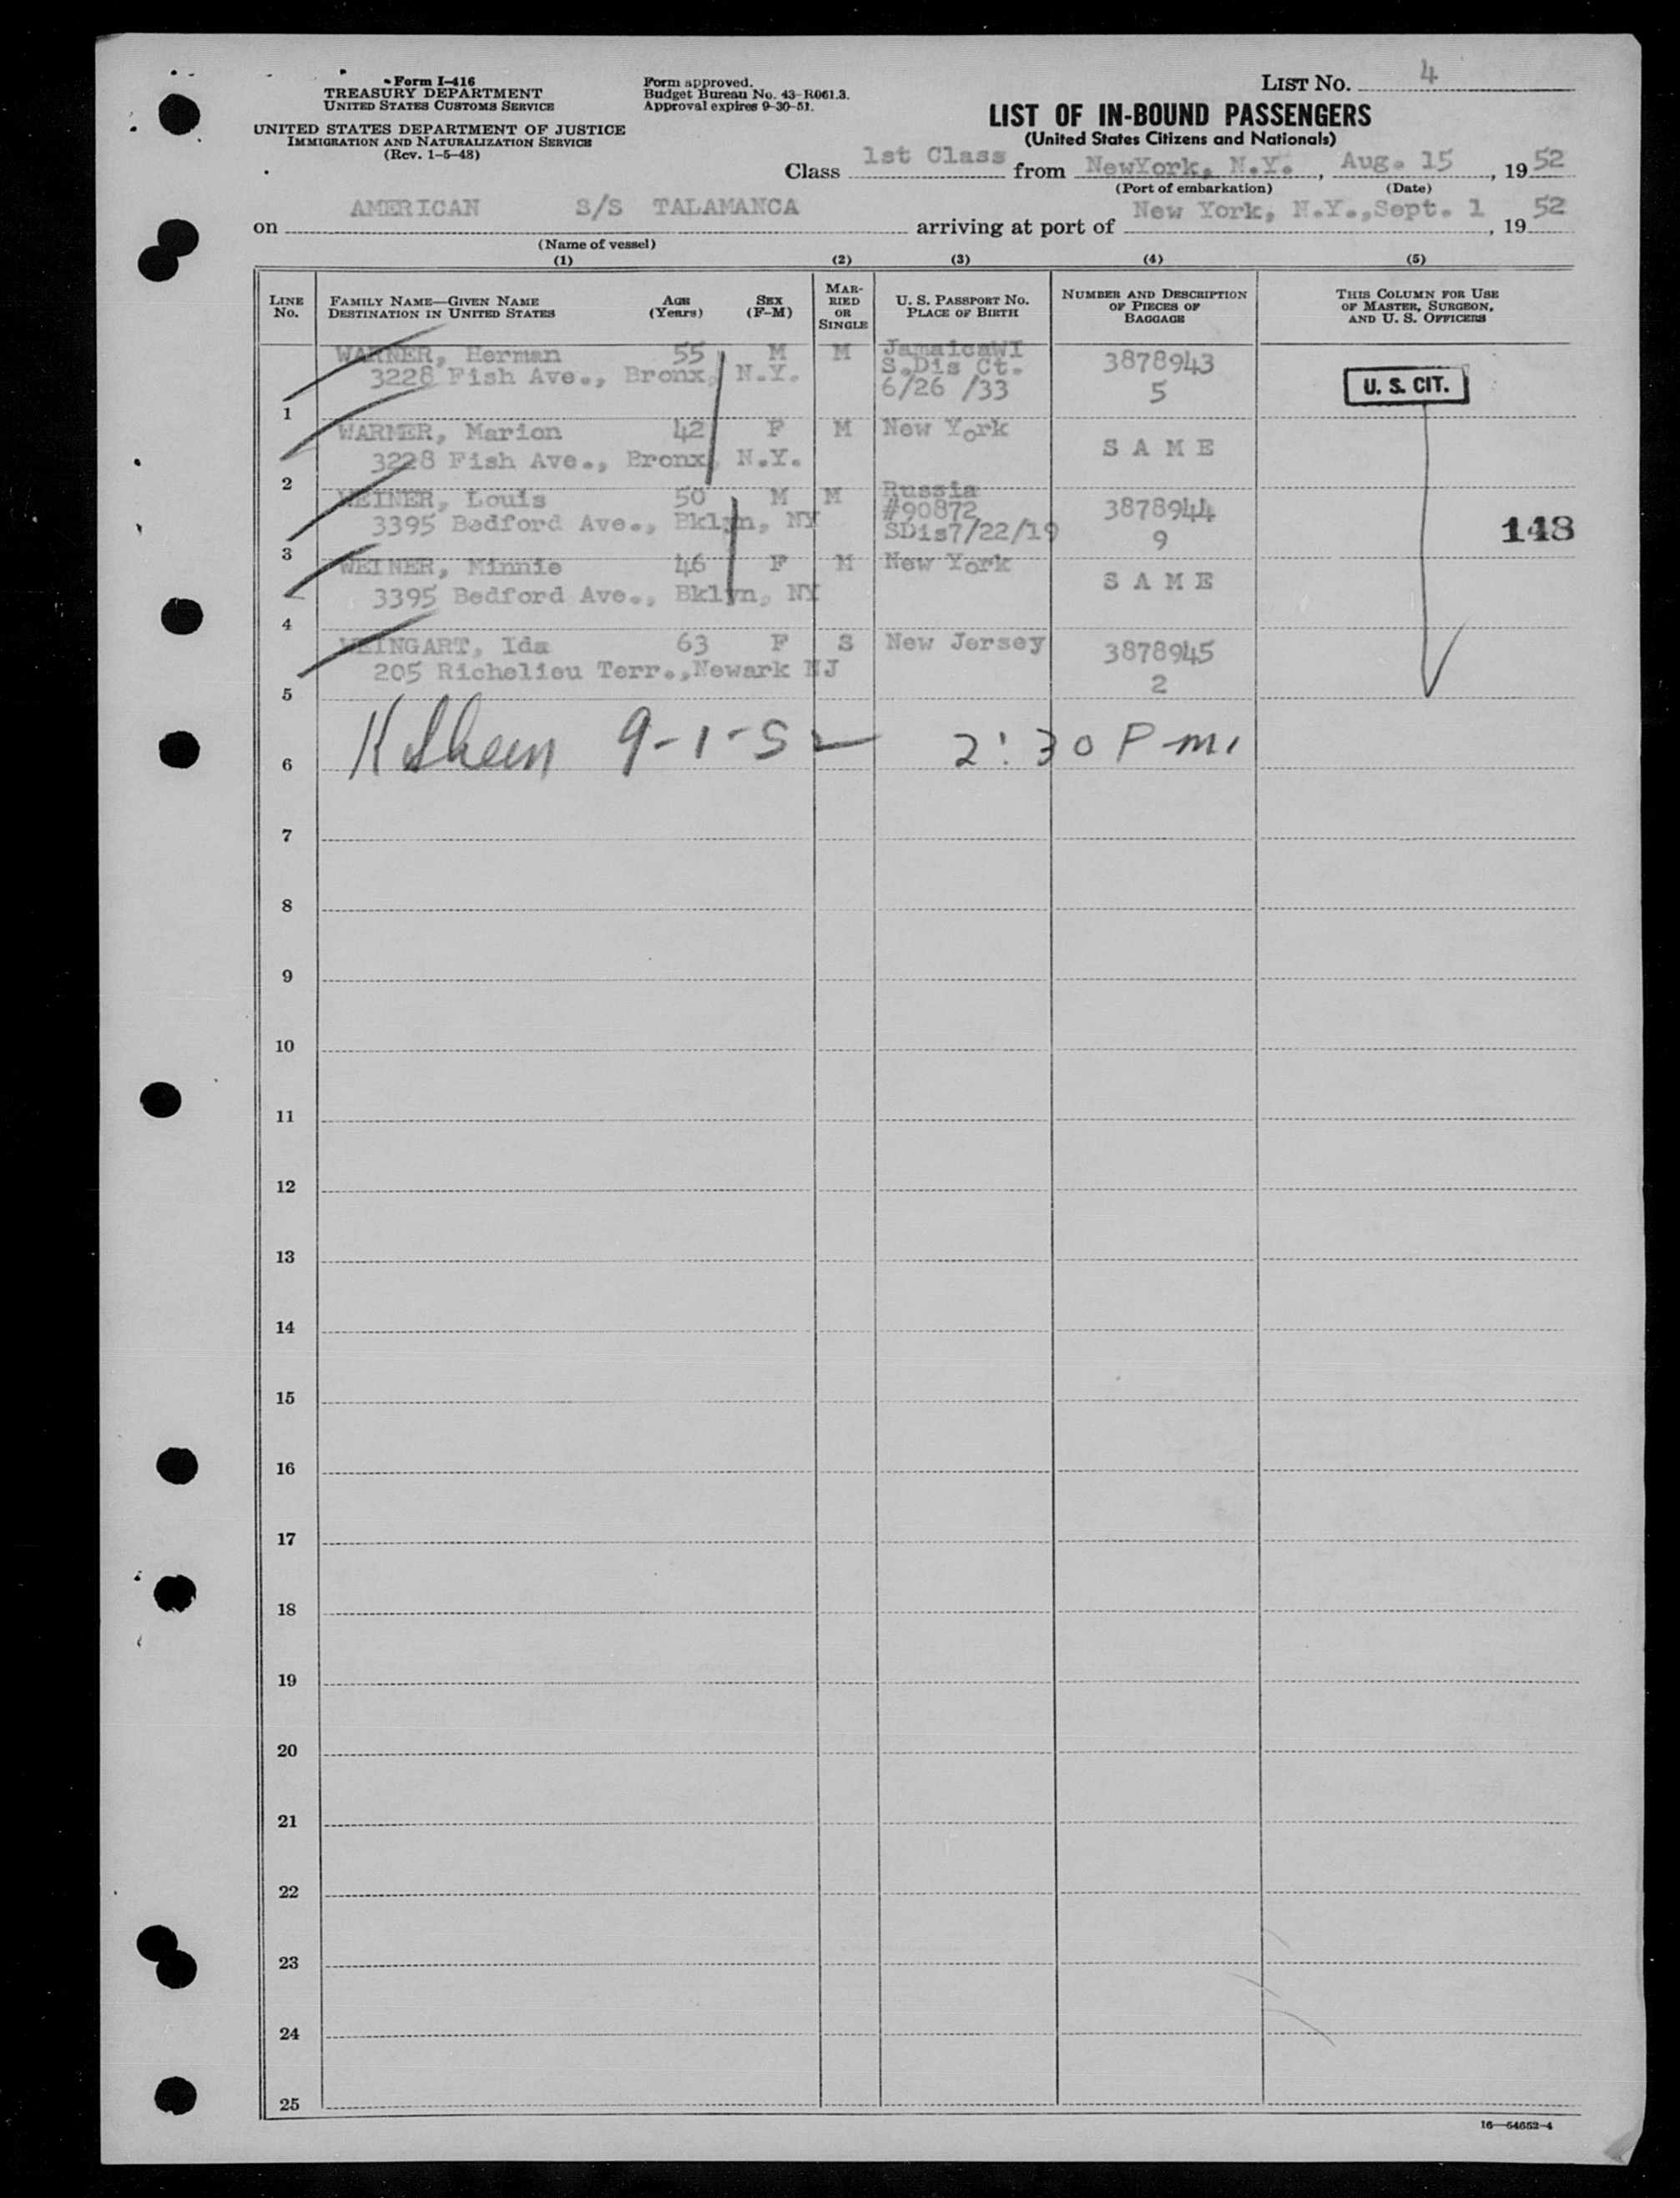 Form I-416
TREASURY DEPARTMENT
UNITED STATES CUSTOMS SERVICE
UNITED STATES DEPARTMENT OF JUSTICE
IMMIGRATION AND NATURALIZATION SERVICE
(Rev. 1-5-48)
Form approved.
Budget Bureau No. 43-R061.3.
Approval expires 9-30-51.
LIST No. 4
LIST OF IN-BOUND PASSENGERS
(United States Citizens and Nationals)
Class 1st Class from NewYork, N.Y., Aug. 15, 1952
(Port of embarkation) (Date)
on AMERICAN S/S TALAMANCA arriving at port of New York, N.Y.,Sept. 1, 1952
(Name of vessel)
(1) (2) (3) (4) (5)
LINE No.
FAMILY NAME—GIVEN NAME
DESTINATION IN UNITED STATES
AGE (Years)
SEX (F-M)
MARRIED OR SINGLE
U. S. PASSPORT No.
PLACE OF BIRTH
NUMBER AND DESCRIPTION OF PIECES OF BAGGAGE
THIS COLUMN FOR USE OF MASTER, SURGEON, AND U. S. OFFICERS
WARNER, Herman 55 M M JamaicaWI 3878943
3228 Fish Ave., Bronx, N.Y. S.Dis Ct. U. S. CIT.
1 6/26 /33 5
WARNER, Marion 42 F M New York
3228 Fish Ave., Bronx, N.Y. S A M E
2
WEINER, Louis 50 M M Russia
3395 Bedford Ave., Bklyn, NY #90872 3878944
3 SDis7/22/19 9 148
WEINER, Minnie 46 F M New York
3395 Bedford Ave., Bklyn, NY S A M E
4
WEINGART, Ida 63 F S New Jersey 3878945
205 Richelieu Terr.,Newark NJ
5 2
6 9-1-52 2:30 P m
7
8
9
10
11
12
13
14
15
16
17
18
19
20
21
22
23
24
25
16—54652-4